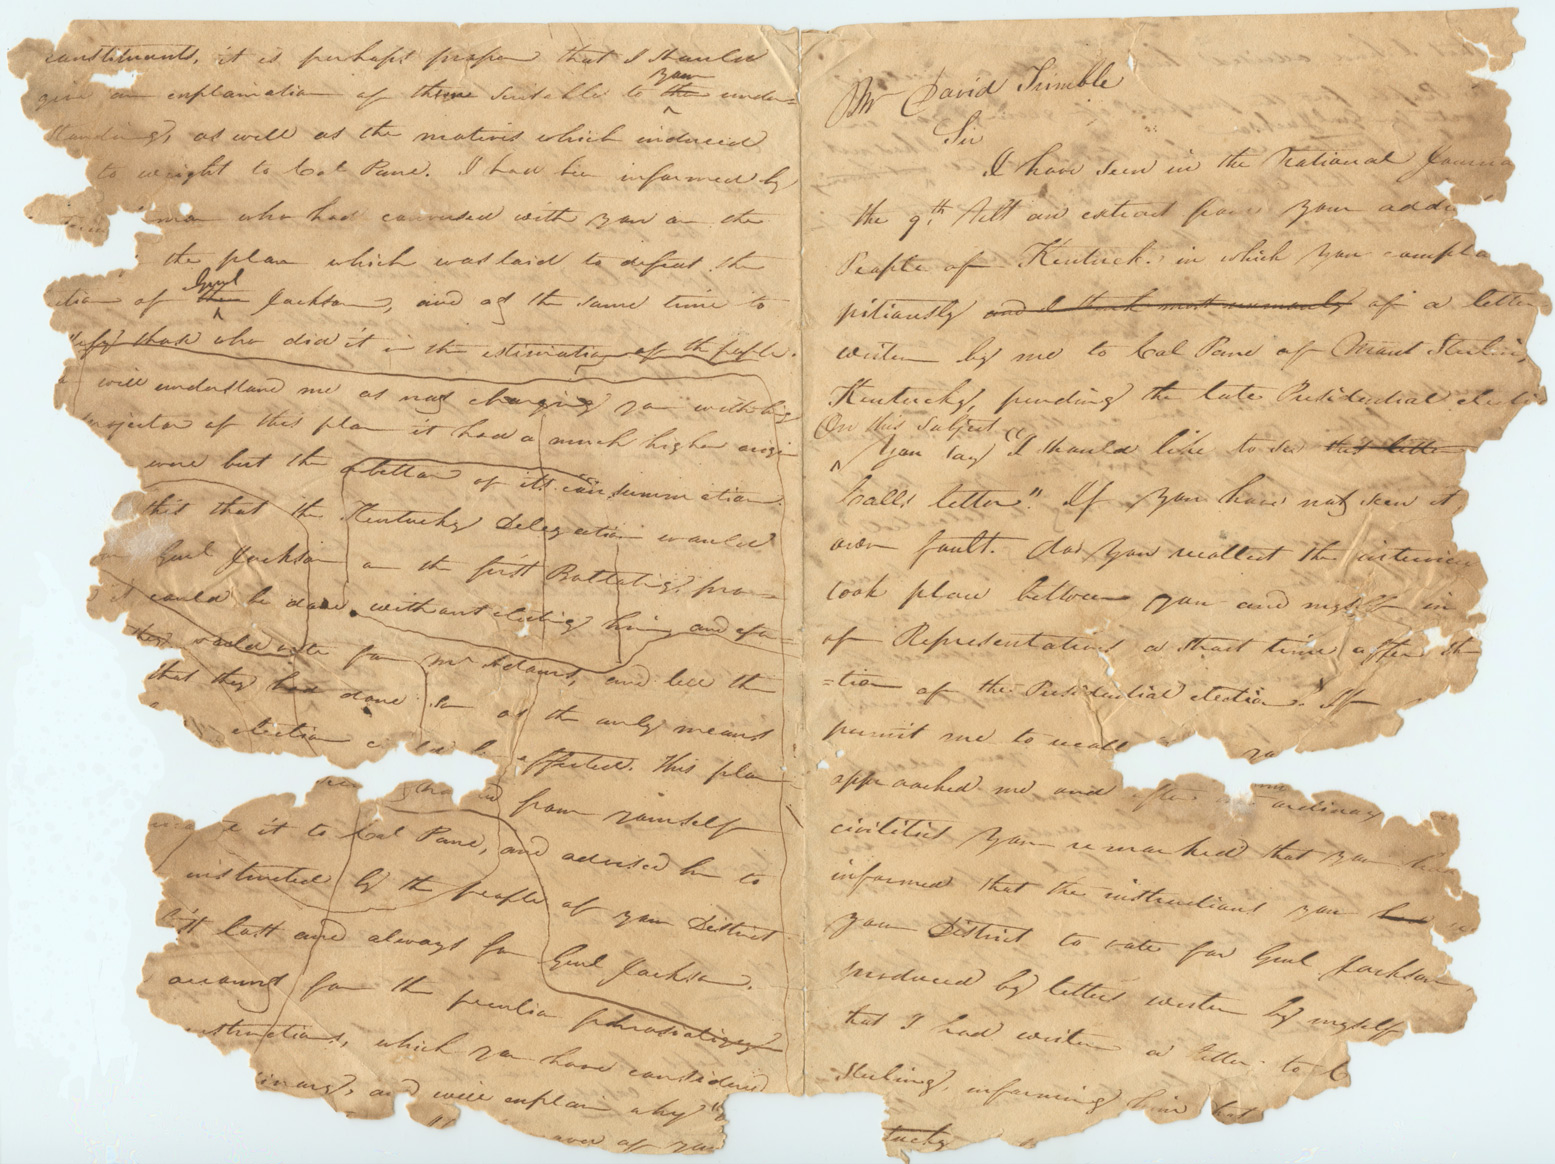 Mr David Trimble
Sir
I have seen in the National Journa
the 9th Ult an extract from your addr
People of Kentuck. in which you compla
pitiously and I think most unmanly of a letter
writen by me to Col Pane of Mount Sterlin,
Kentucky, pending the late Presidential electi
On this subject
You say "I should like to see this letter
Calls letter" If you have not seen it,
own fault. do you recollect the interview
took place between you and myself in
of Representatives a short time after the
=tion of the Presidential election? If
permit me to recall yo
approached me and after ordinary
civilities you remarked that you
informed that the instructions you had
your District to vote for Genl Jackson
produced by letters writen by myself
that I had writen a letter to C
Sterling, informing him that
tucky
constituents, it is perhaps proper that I should
your
give an explanation of them suitable to the under=
standing, as well as the motives which induced
to wright to Col Pane. I had been informed by
man who had conversed with you on the
the plan which was laid to defeat the
Genl
ction of then Jackson, and at the same time to
tify those who did it in the estimation of the people.
will understand me as not charging you with being
rojector of this plan it had a much higher origin
were but the abettor of its consummation
this that the Kentucky Delegation would
Genl Jackson on the first Ballating, prov=
d could be done without electing him, and after
they would vote for Mr Adams, and tell the
that they had done so as the only means
election could be effected. This plan
from yourself
it to Col Pane, and advised him to
instructed by the people of your District
st last and always for Genl Jackson.
account for the peculiar phraseology
structions, which you have considered
and will explain why "
aver of your